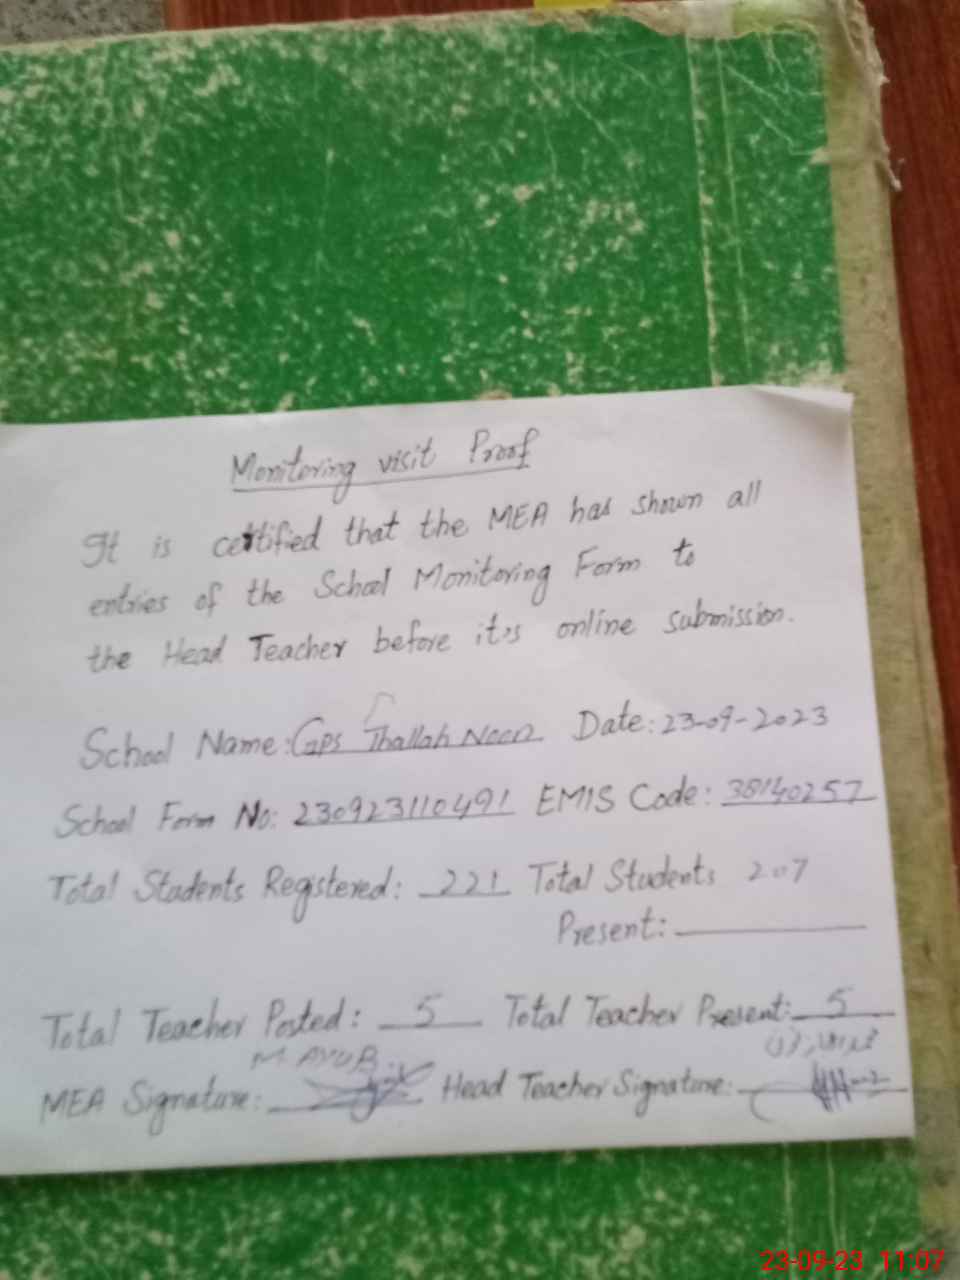 Monitoring visit Proof
It is certified that the MEA has shown all
entries of the School Monitoring Form to
the Head Teacher before it's online submission.
School Name: GPS Thallah Noon Date: 23-09-2023
School Form No: 230923110491 EMIS Code: 38140257
Total Students Registered: 221 Total Students 207
Present:
Total Teacher Posted: 5 Total Teacher Present: 5
M AYUB
MEA Signature: Head Teacher Signature:
23-09-23 11:07